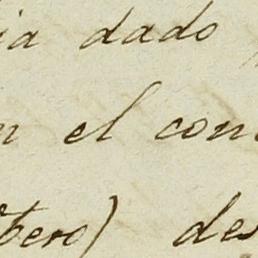 ia dado
n el con
bero) des